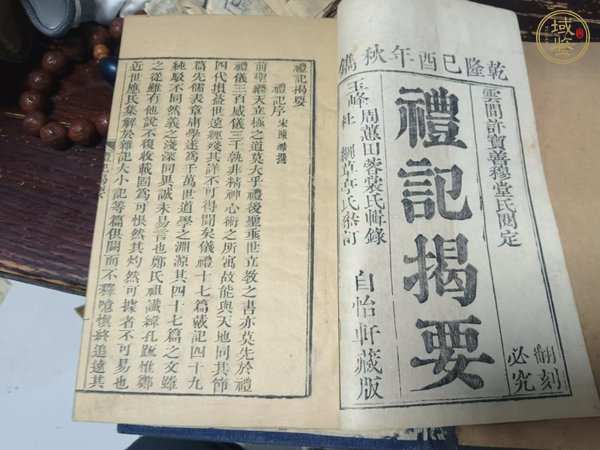 乾隆己酉年秋鐫
雲間許寶善穆堂氏閱定
禮記揭要
翻刻
必究
玉峰
周蕙田蓉裳氏輯錄
杜綱草亭氏叅訂
自怡軒藏版
禮記揭要
禮記序 宋陳澔撰
前聖繼天立極之道莫大乎禮後聖垂世立教之書亦莫先於禮
禮儀三百威儀三千孰非精神心術之所寓故能與天地同其節
四代損益世遠經殘其詳不可得聞矣儀禮十七篇戴記四十九
篇先儒表章庸學遂爲千萬世道學之淵源其四十七篇之文雖
純駁不同然義之淺深同異誠未易言也鄭氏祖讖緯孔疏惟鄭
之從雖有他說不復收載固爲可恨然其灼然可據者不可易也
近世應氏集解於雜記大小記等篇俱闕而不釋噫愼終追遠其
域鉴